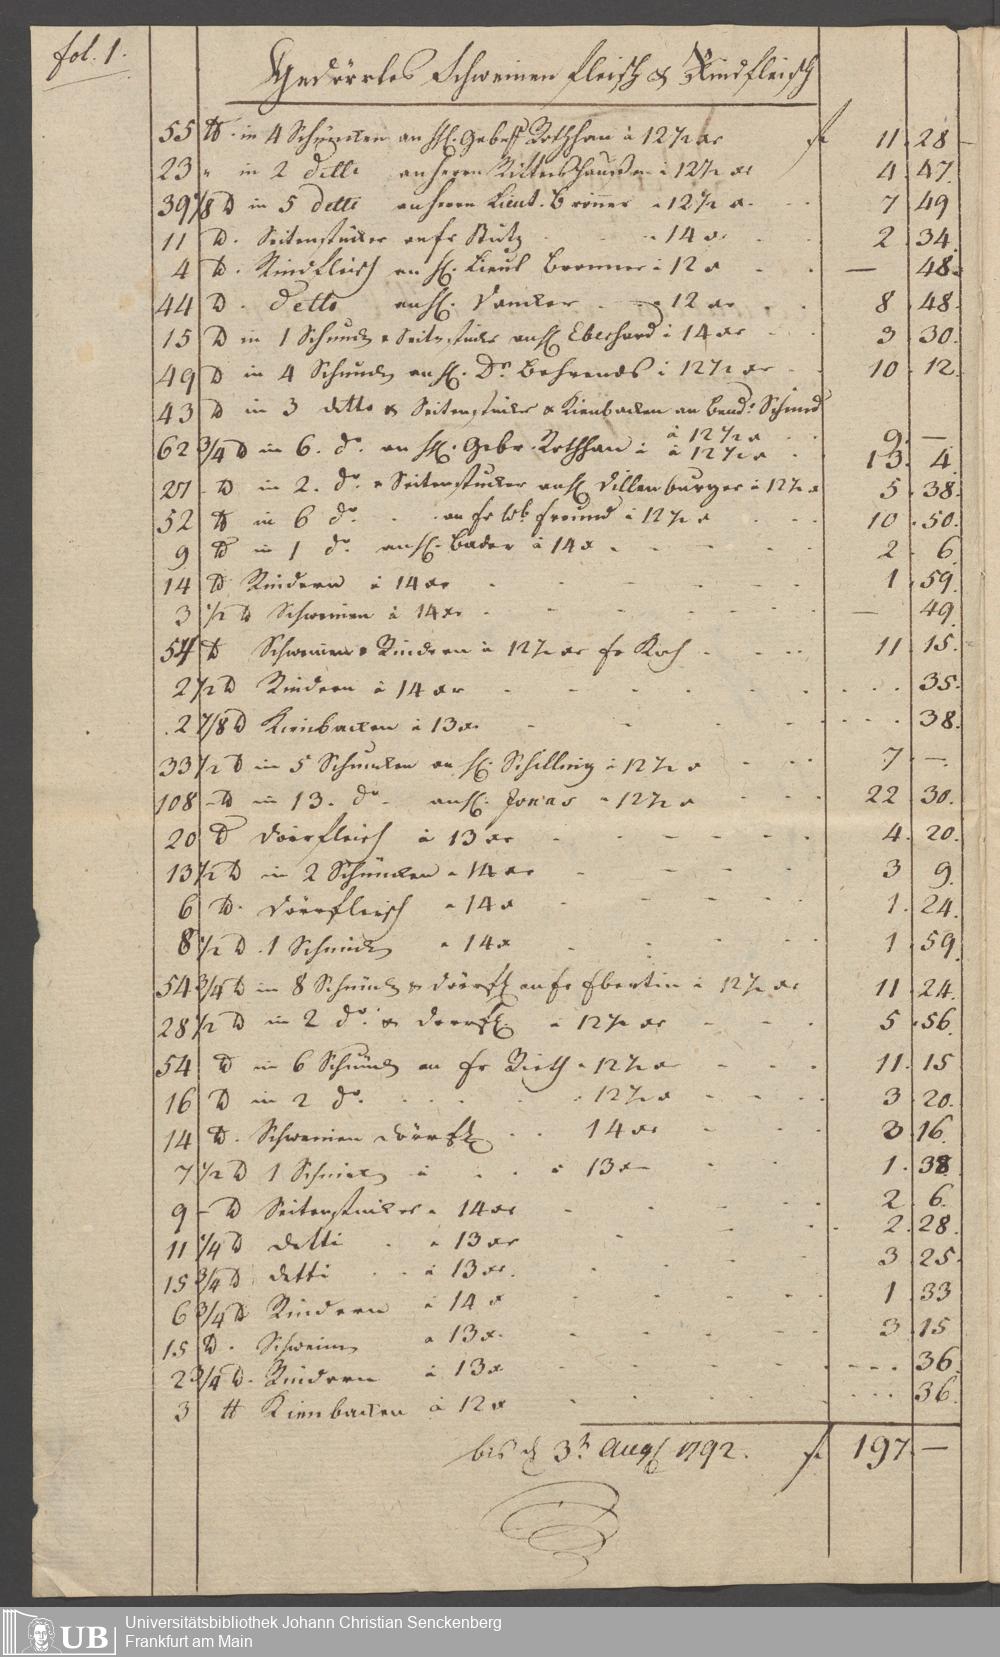 fol. 1.
Gedörrtes Schweinen fleisch & Rindfleisch
55 ℔. in 4 Schüncken an H. Gebr Rothhan à 12½ xr f 11. 28
23 " in 2 detti an herrn Rittershaussen à 12½ xr 4. 47.
39⅞ ℔ in 5 detti an herrn Lieut. Bröner à 12½ x. 7. 49
11 ℔. Seitenstücker an fr Stutz à 14 xr 2. 34.
4 ℔. Rindfleisch an H. Lieut Bronner à 12 x — 48.
44 ℔. detto an H. Dancker à 12 xr 8. 48.
15 ℔ in 1 Schunck & Seitenstücker an H. Eberhard à 14 xr 3. 30.
49 ℔ in 4 Schunck an H. Dr. Behrends à 12½ xr 10. 12.
43 ℔ in 3 detto & Seitenstücker & Kienbacken an Bend. Schmid
à 12½ x 9. —
62¾ ℔ in 6. do. an H. Gebr. Rothhan à 12½ x 13. 4.
27 ℔ in 2. do. & Seitenstucker an H. Dillenburger à 12½ x 5. 38.
52 ℔ in 6 do. an fr Wb. freund à 12½ x 10. 50.
9 ℔ in 1 do. an H. Bader à 14 x 2. 6
14 ℔ Rindern à 14 xr 1. 59.
3½ ℔ Schweinen à 14 xr — 49.
54 ℔ Schweinen & Rindern à 12½ xr fr Koch 11. 15.
2½ ℔ Rindern à 14 xr 35.
2⅞ ℔ Kienbacken à 13 x. 38.
33½ ℔ in 5 Schuncken an H. Schilling à 12½ x 7. —.
108 - ℔ in 13. do. an H. Jonas à 12½ x 22. 30.
20 ℔ dörrfleisch à 13 xr 4. 20.
13½ ℔ in 2 Schüncken à 14 xr 3 9.
6 ℔. dörrfleisch à 14 x 1. 24.
8½ ℔. 1 Schunck à 14 x 1. 59.
54¾ ℔ in 8 Schünck & dörrfl an fr Ebertin à 12½ xr 11. 24.
28½ ℔ in 2 do. & dörrfl. à 12½ xr 5. 56.
54 ℔ in 6 Schünck an fr Rieth à 12½ x 11. 15
16 ℔ in 2 do. 12½ x 3. 20.
14 ℔. Schweinen dörrfl 14 xr 3. 16.
7½ ℔ 1 Schinck à 13 x 1. 38
9 - ℔ Seitenstücker à 14 xr 2. 6.
11¼ ℔ detti à 13 xr 2. 28.
15¾ ℔ detti à 13 xr. 3. 25.
6¾ ℔ Rindern à 14 x 1. 33
15 ℔. Schweinen à 13 x. 3. 15
2¾ ℔. Rindern à 13 x 36.
3 ℔ Kienbacken à 12 x 36.
bis d 3t. Augst 1792. f 197. —
UB Universitätsbibliothek Johann Christian Senckenberg
Frankfurt am Main